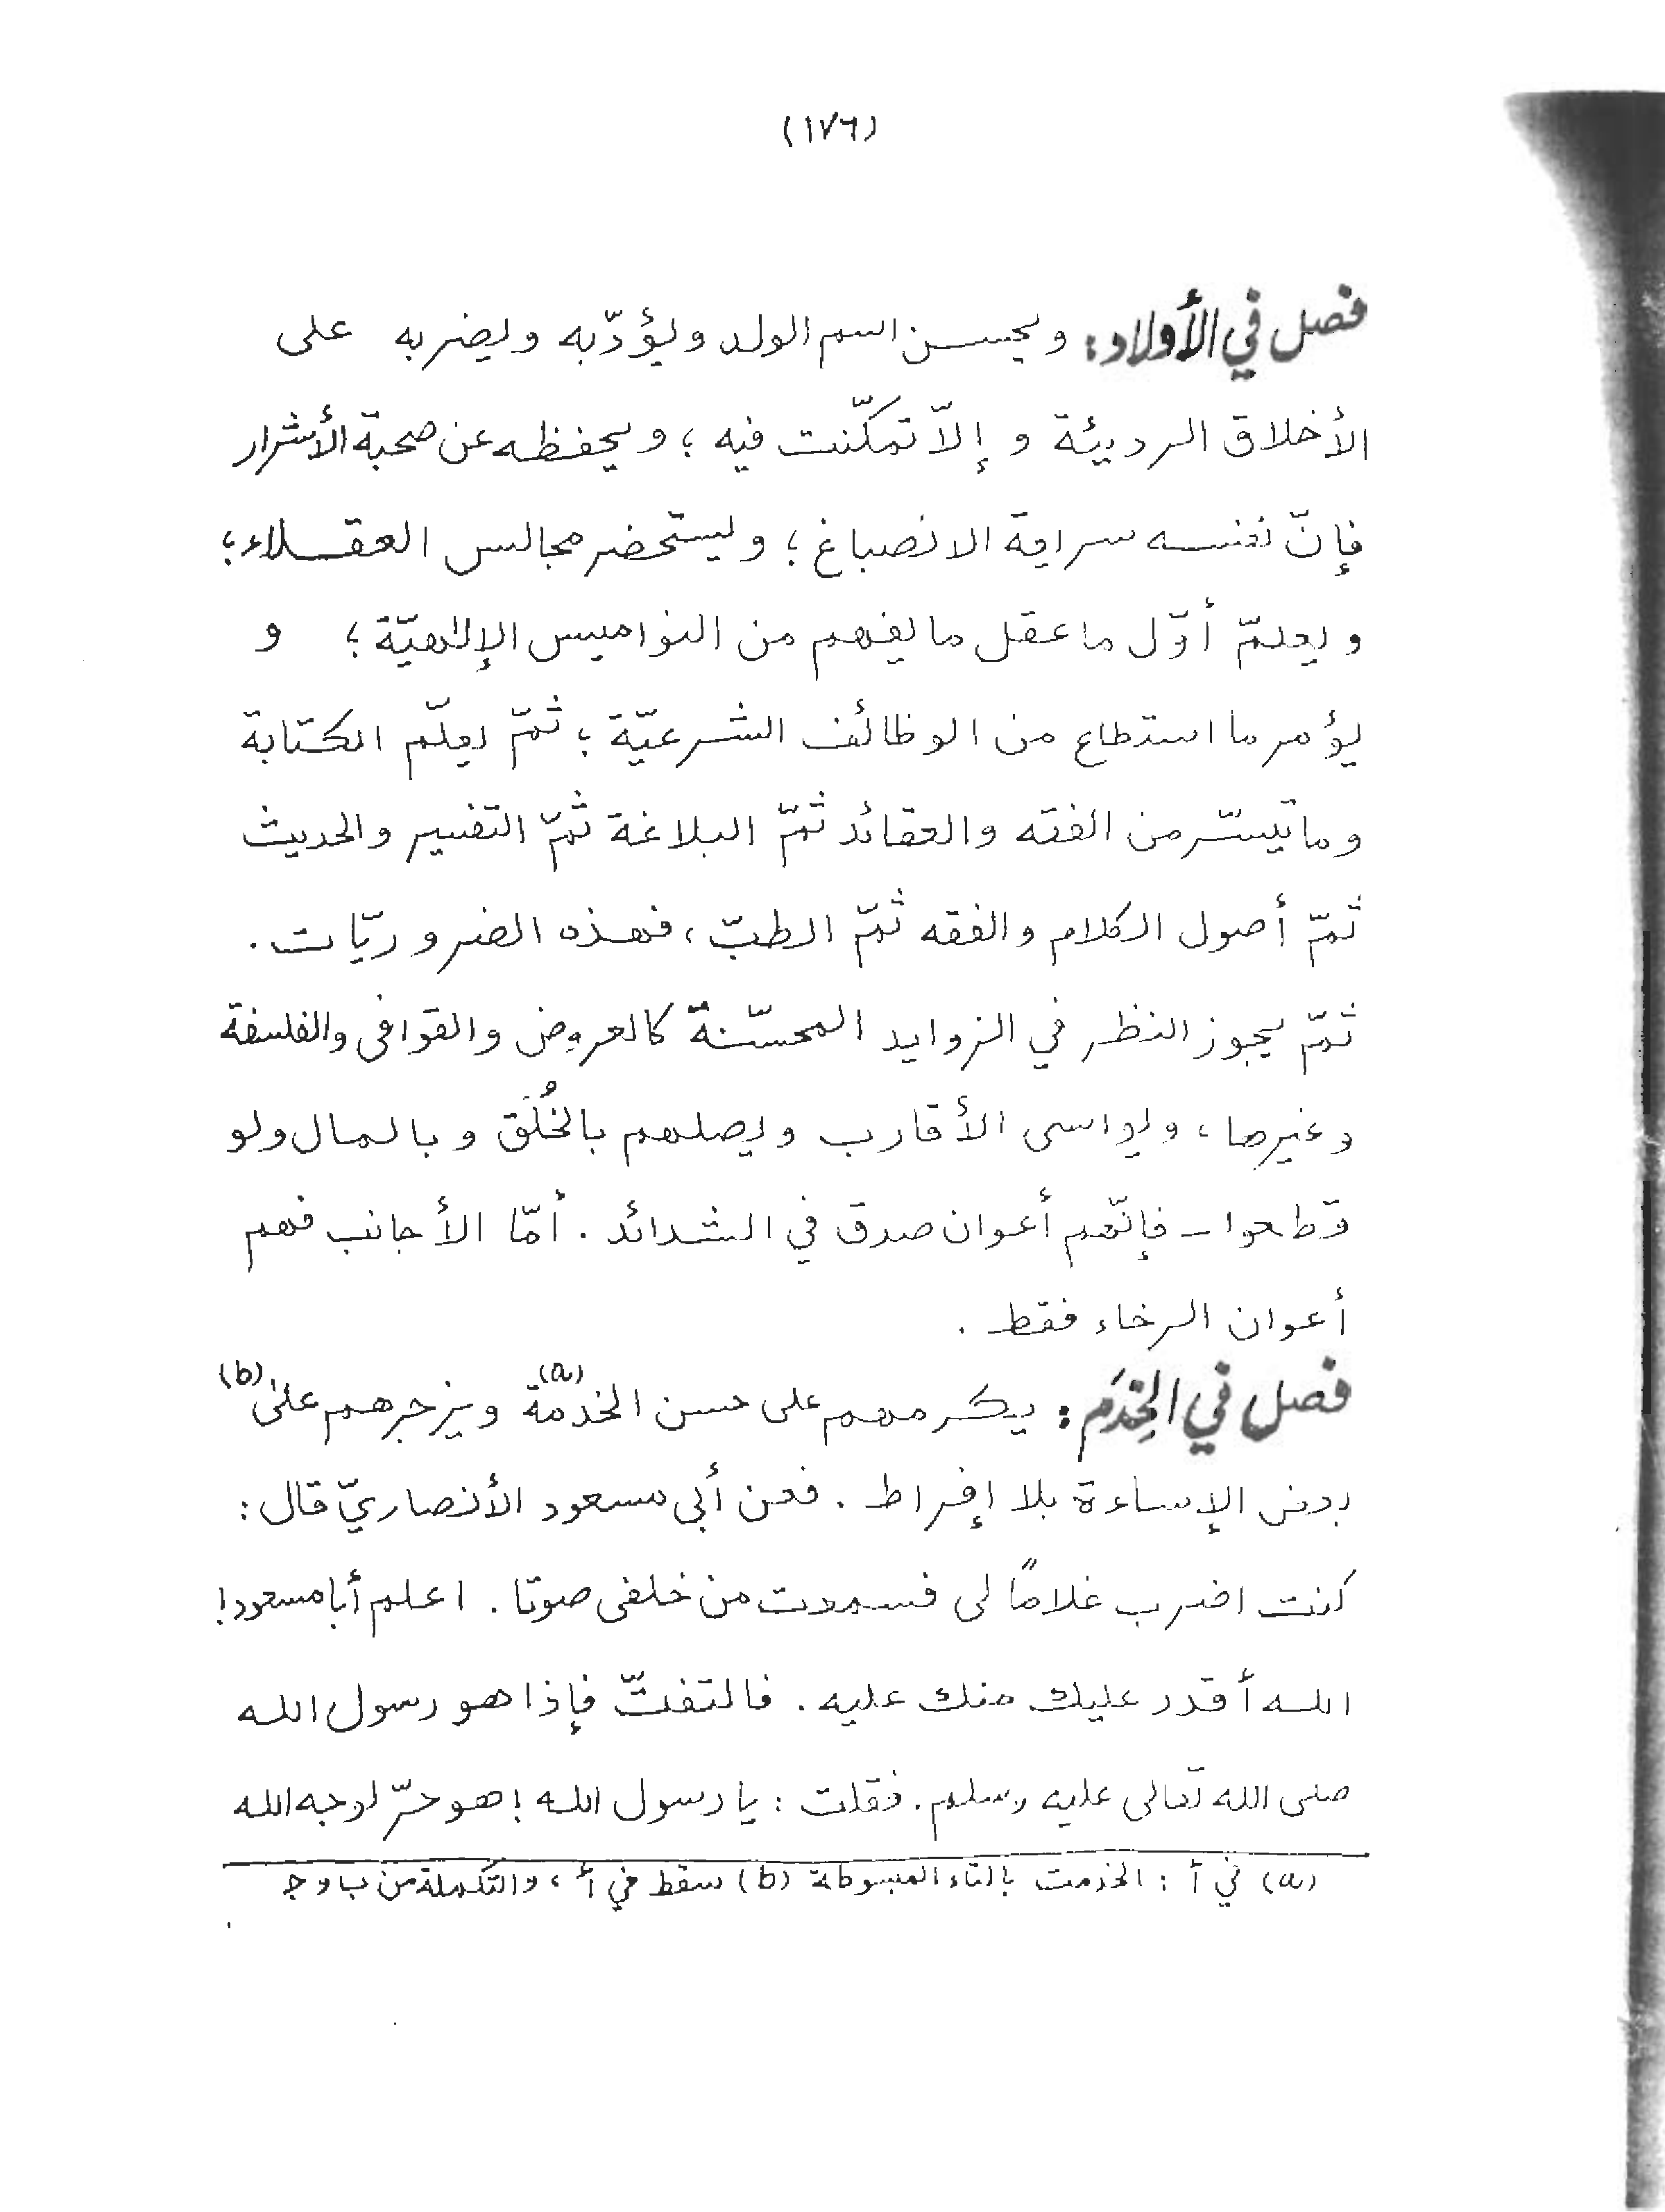 (١٧٦)
فصل في الأولاد: ويحسن اسم الولد ويؤدّبه ويضربه على
الأخلاق الرديئة وإلّا تمكّنت فيه؛ ويحفظه عن صحبة الأشرار
فإنّ نفسه سراية الانصباغ؛ وليستحضر مجالس العقلاء؛
ويعلمّ أوّل ما عقل ما يفهم من النواميس الإلٰهيّة؛ و
يؤمر ما استطاع من الوظائف الشرعيّة؛ ثمّ يعلّم الكتابة
وما تيسّر من الفقه والعقائد ثمّ البلاغة ثمّ التفسير والحديث
ثمّ أصول الكلام والفقه ثمّ الطبّ، فهذه الضروريّات.
ثمّ يجوز النظر في الزوايد المحسّنة كالعروض والقوافى والفلسفة
وغيرها، ويواسى الأقارب ويصلهم بالخُلُق وبالمال ولو
قطعوا ـ فإنّهم أعوان صدق في الشدائد. أمّا الأجانب فهم
أعوان الرخاء فقط.
فصل في الخِدَم: يكرمهم على حسن الخدمة(a) ويزجرهم على(b)
بعض الإساءة بلا إفراط. فعن أبى مسعود الأنصاريّ قال:
كنت اضرب غلامًا لى فسمعت من خلفى صوتا. اعلم أبا مسعود!
الله أقدر عليك منك عليه. فالتفتّ فإذا هو رسول الله
صلى الله تعالى عليه وسلم. فقلت: يا رسول الله! هو حرّ لوجه الله
(a) في أ: الخدمت بالتاء المبسوطة (b) سقط في أ، والتكملة من ب و ج